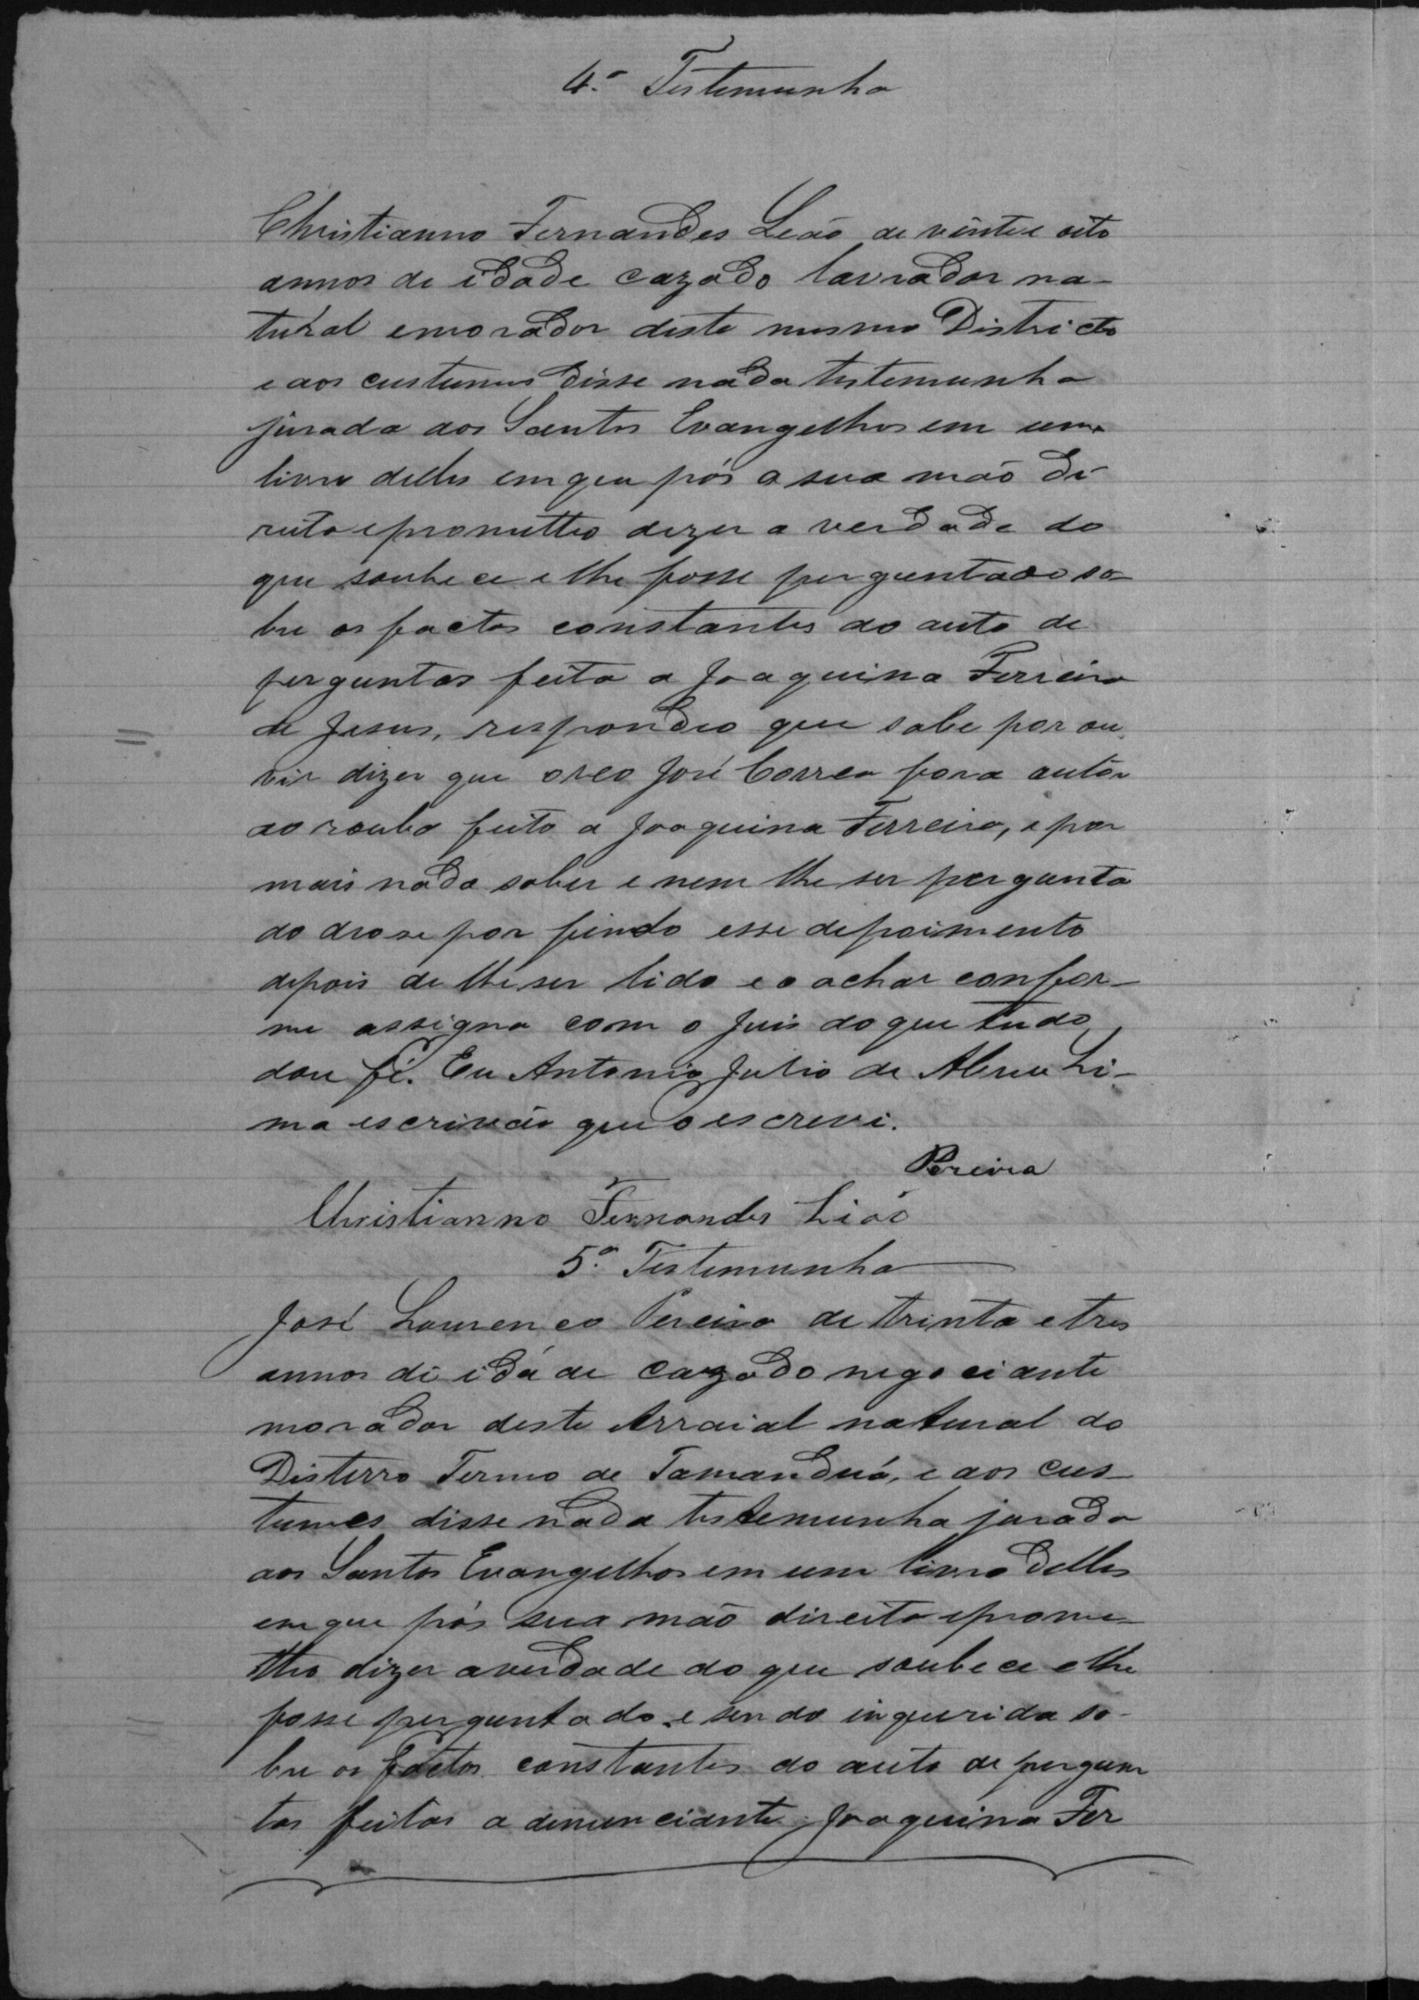 4.ª Testemunha
Christianno Fernandes Leão de vinte e oito
annos de idade cazado lavrador na-
tural e morador deste mesmo Districto
e aos custumes disse nada testemunha
jurada aos Santos Evangelhos em um
livro delles em que pós a sua mão di
reita e prometteo dizer a verdade do
que soubece e lhe fosse perguntado so-
bre os factos constantes do auto de
perguntas feita a Joaquina Ferreira
de Jesus, respondeo que sabe por ou
vir dizer que o reo José Correa fora autor
do roubo feito a Joaquina Ferreira, e por
mais nada saber e nem lhe ser pergunta
do diose por findo esse depoimento
depois de lhe ser lido e o achar confor-
me assigna com o Juis do que tudo
dou fé. Eu Antonio Julio de Abreu Li-
ma escrivão que o escrevi.
Pereira
Christianno Fernandes Lião
5.ª Testemunha
José Lourenco Pereira de trinta e tres
annos de idade cazado negociante
morador deste Arraial natural do
Disterro Termo de Tamanduá, e aos cus-
tumes disse nada testemunha jurada
aos Santos Evangelhos em um livro delles
em que pós sua mão direita e prome-
tteo dizer a verdade do que soubece e lhe
fosse perguntado e sendo inquerida so-
bre os factos constantes do auto de pergun
tas feitas a denunciante Joaquina Fer